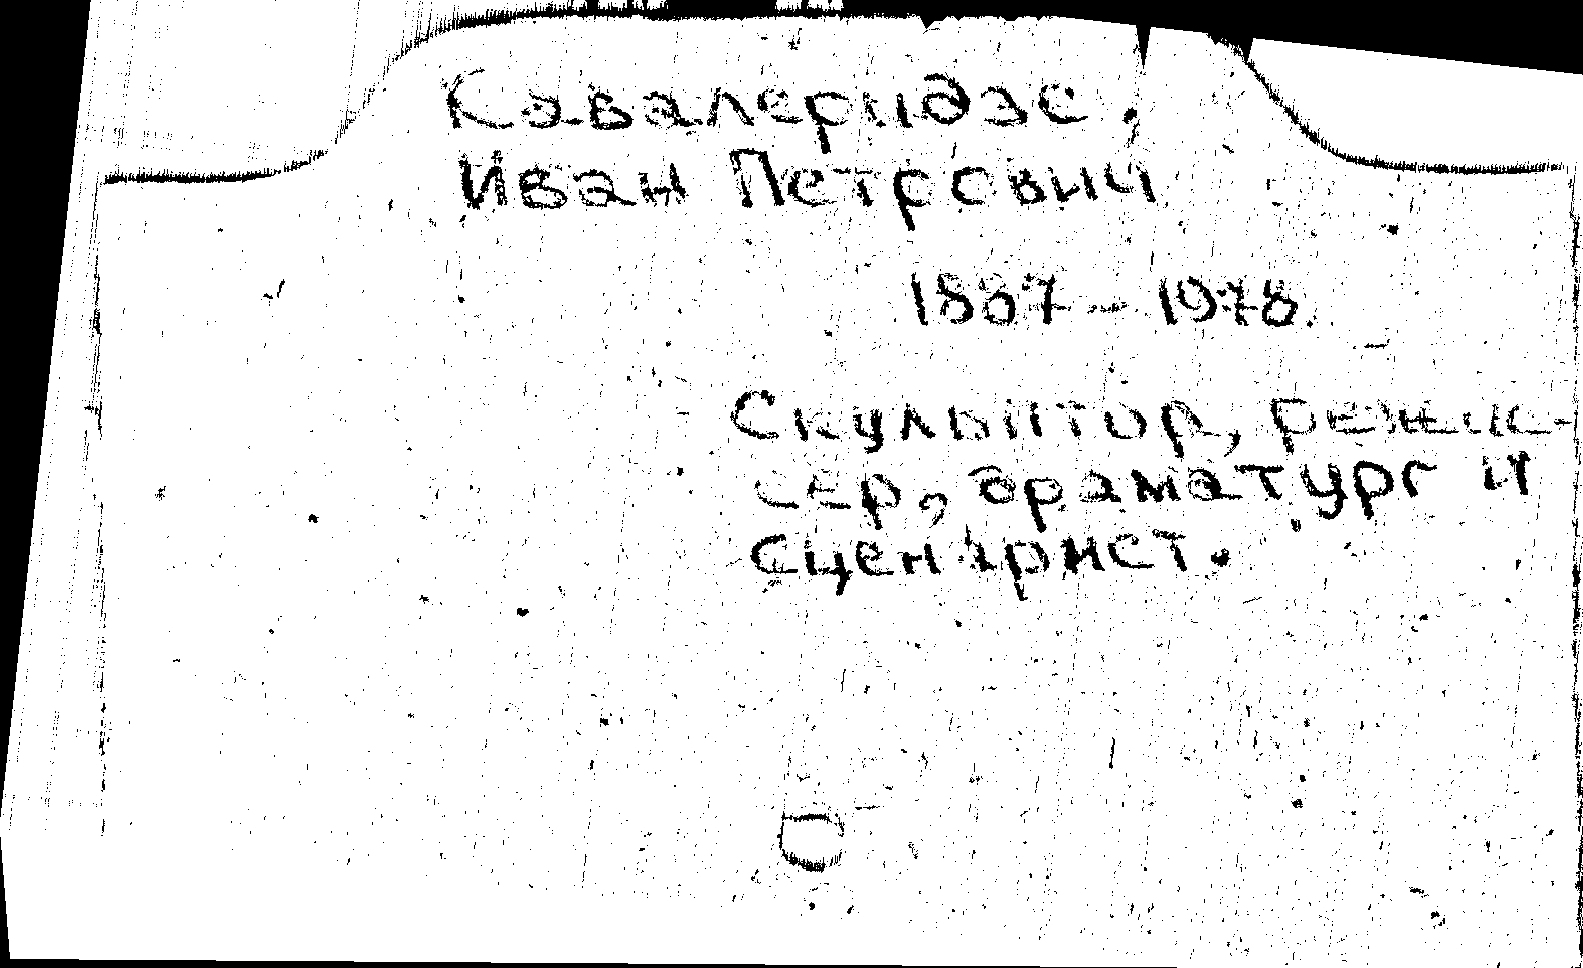 Кавалеридзе,
Иван Петрович
1887 - 1978.
Скульптор, режис-
сер, драматург и
сценарист.